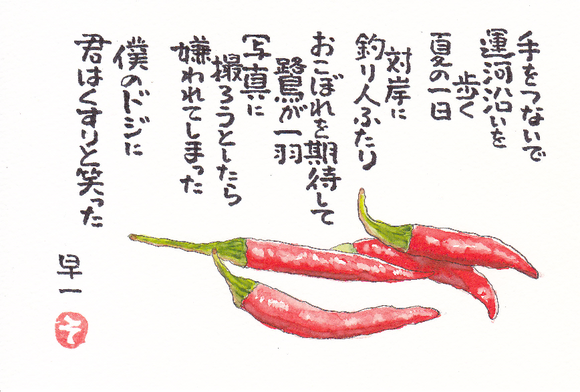 手をつないで
運河沿いを
歩く
夏の一日
対岸に
釣り人ふたり
おこぼれを期待して
鷺が一羽
写真に
撮ろうとしたら
嫌われてしまった
僕のドジに
君はくすりと笑った
早一
そ